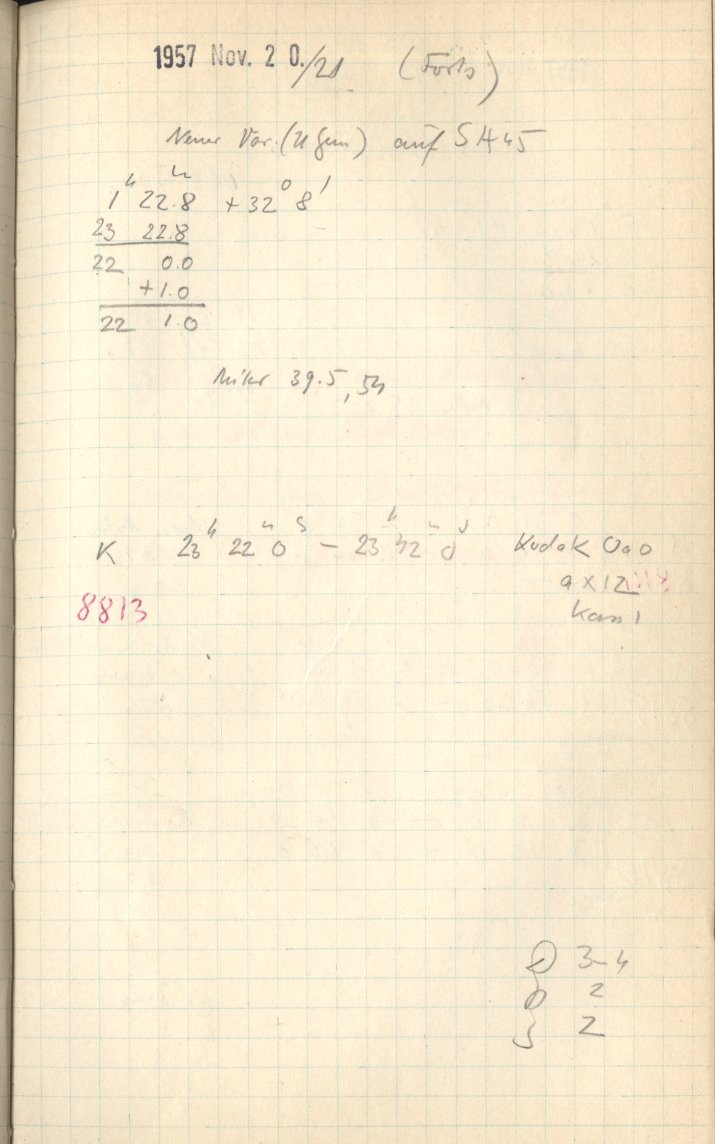 1957 Nov. 20./21 (Forts)
Neuer Var. (U Gem) auf SH45
1h 22.8m +32° 8'
23 22.8
22 0.0
+1.0
22 1.0
Mikr 39.5, 54
K 23h 22m 0s – 23h 42m 0s Kodak OaO
8813 9x12
Kass 1
3-4
2
2